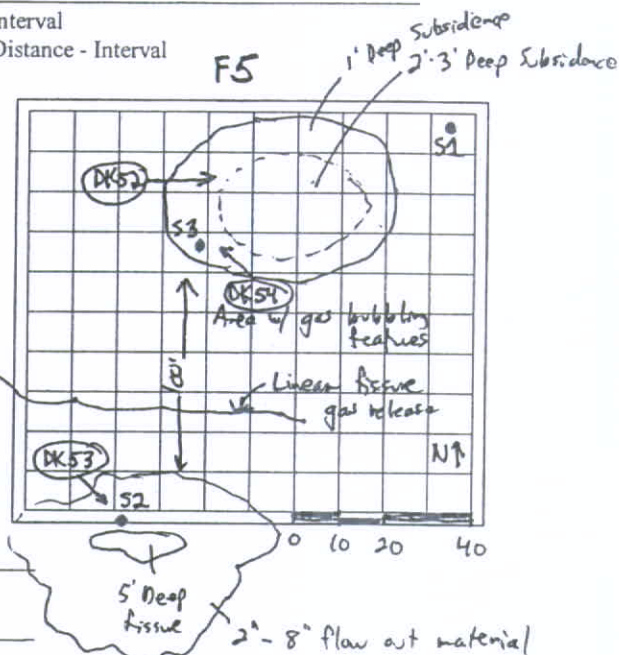 nterval
Distance - Interval
F5
1' Deep Subsidence
2'-3' Deep Subsidence
S1
DK52
S3
DK54
Area w/ gas bubbling
features
Linear fissure
gas release
N↑
DK53
S2
0 10 20 40
5' Deep
fissure
2"-8" flow out material